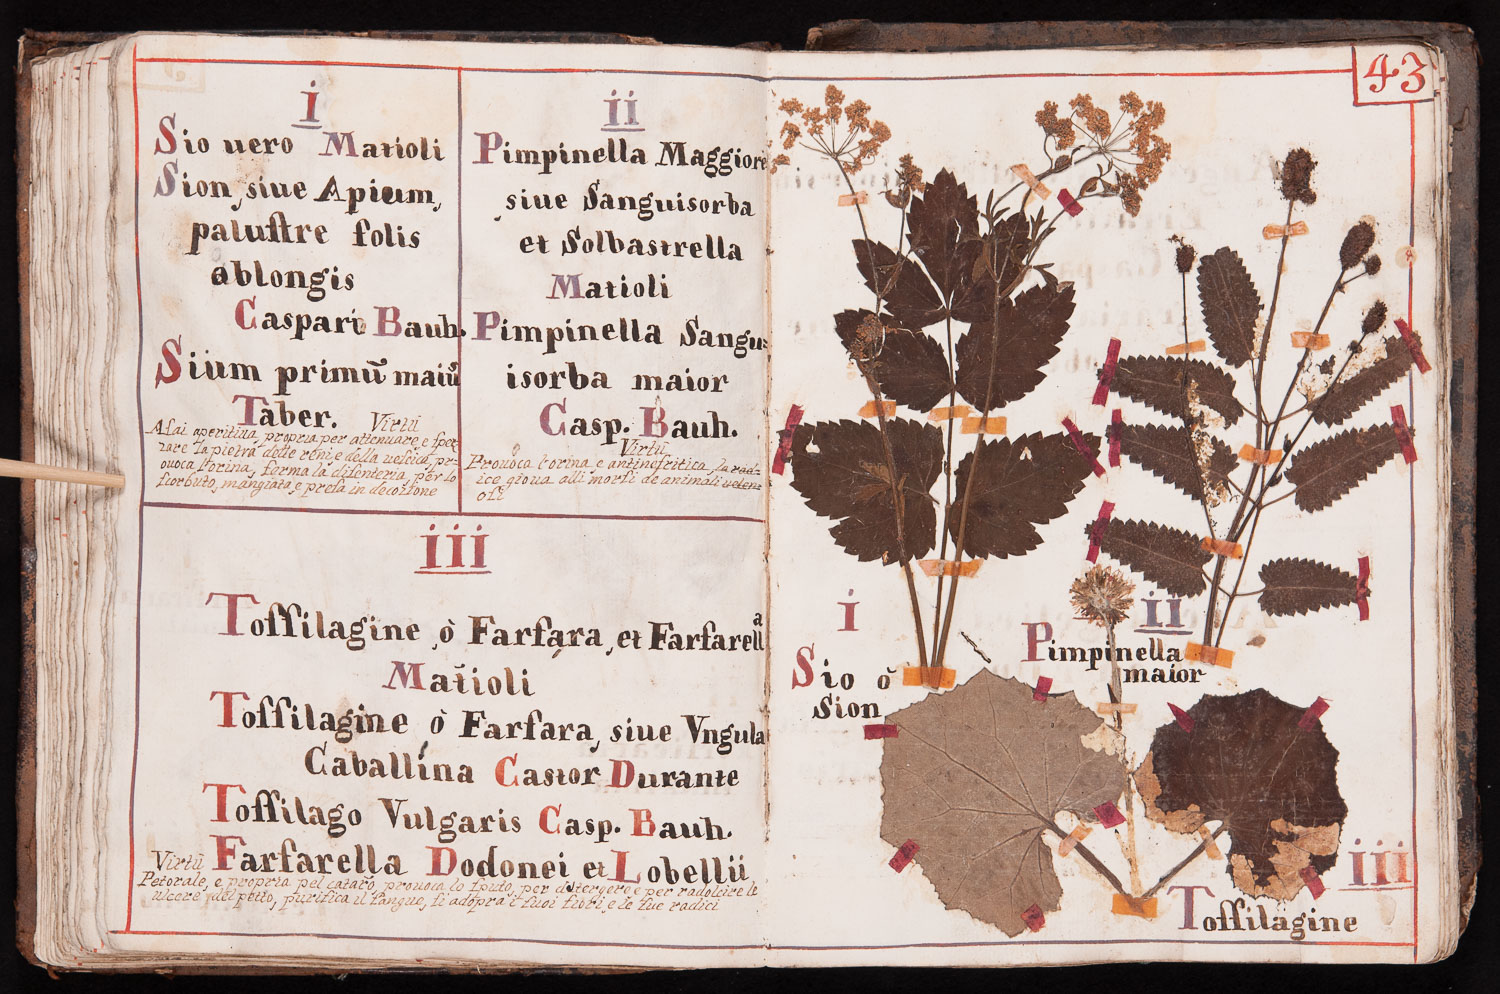 i
Sio uero Matioli
Sion, siue Apium,
paluſtre folis
oblongis
Caspari Bauh.
Sium primũ maiũ
Taber.
Virtũ
Aſai aperitiua, propria per attenuare, e ſpez-
zare la pietra delle reni, e della ueſcica, pr-
ouoca l'orina, ferma la diſenteria, per lo
ſcorbuto, mangiata, e preſa in decotione
ii
Pimpinella Maggiore
siue Sanguisorba
et Solbastrella
Matioli
Pimpinella Sangu=
isorba maior
Casp. Bauh.
Virtũ
Prouoca l'orina e antinefritica, la rad=
ice gioua alli morſi de animali uelen=
oſi
iii
Toſſilagine, ò Farfara, et Farfarella
Matioli
Toſſilagine ò Farfara, siue Vngula
Caballina Castor Durante
Toſſilago Vulgaris Casp. Bauh.
Farfarella Dodonei et Lobellii
Virtũ
Petorale, e propria pel cataro, prouoca lo ſputo, per detergere e per radolcire le
ulcere del petto, purifica il ſangue, ſi adopra i ſuoi fiori, e le ſue radici
43
i
Sio ò
Sion
ii
Pimpinella
maior
iii
Toſſilagine